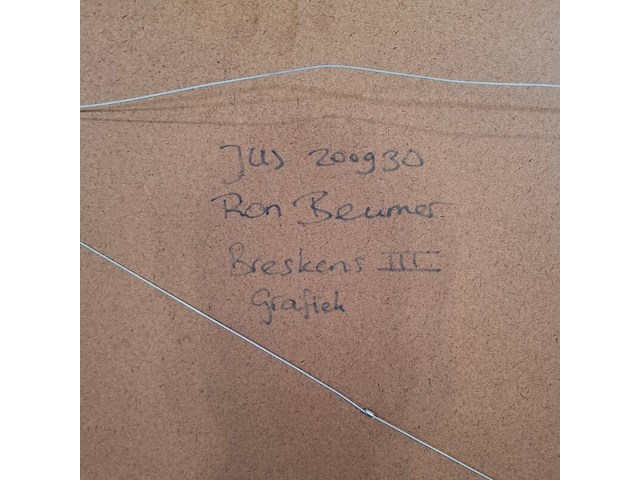 JUS 200930
Ron Beumer
Breskens III
Grafiek